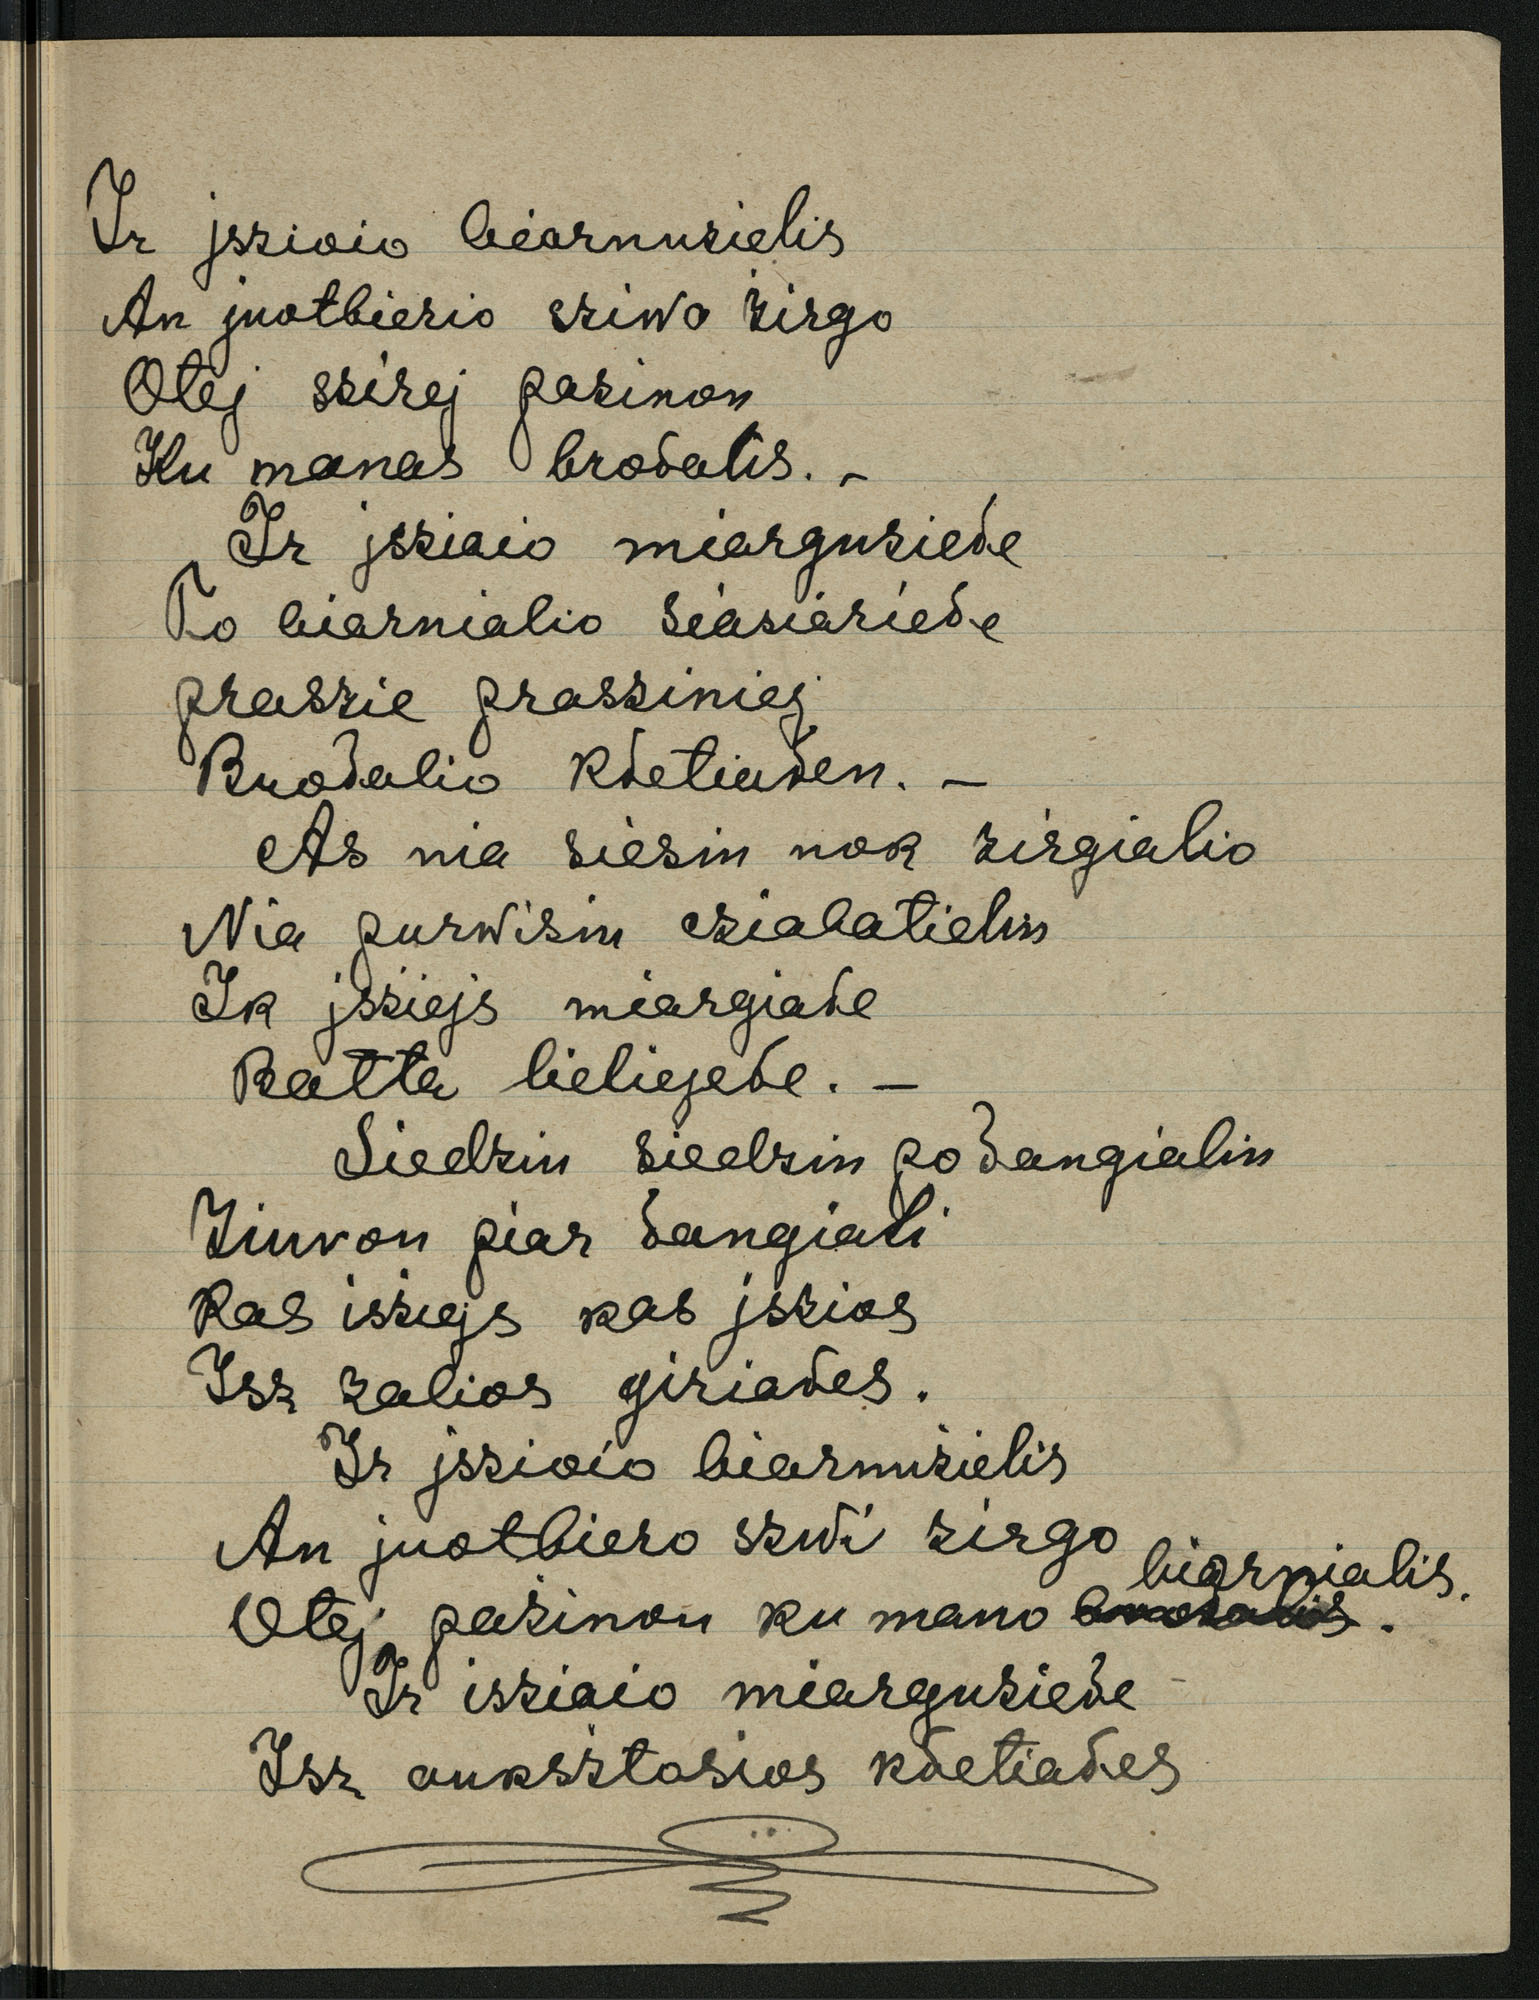 Ir jszioio biernuzielis
An juotbierio sziwo zirgo
Otej szirej pazinon
Ku manas brodalis. –
Ir jsziaio miarguziede
To biarnialio siasiariede
praszie prassziniej
Brodalio kdetiaden. –
As nia siesin nok zirgialio
Nia purwisin cziabatielin
Ik jsziejs miargiade
Batta bieliejede. –
Siedzin siedzin podangialin
Ziuron piar dangiali
Kas isziejs kas jszios
Isz zalios giriades.
Ir jszioio biarnużielis
An juotbiero szwi zirgo
Otej pażinon ku mano biarnialis.
Ir isziaio miarguziede
Isz auksztosios kdetiades